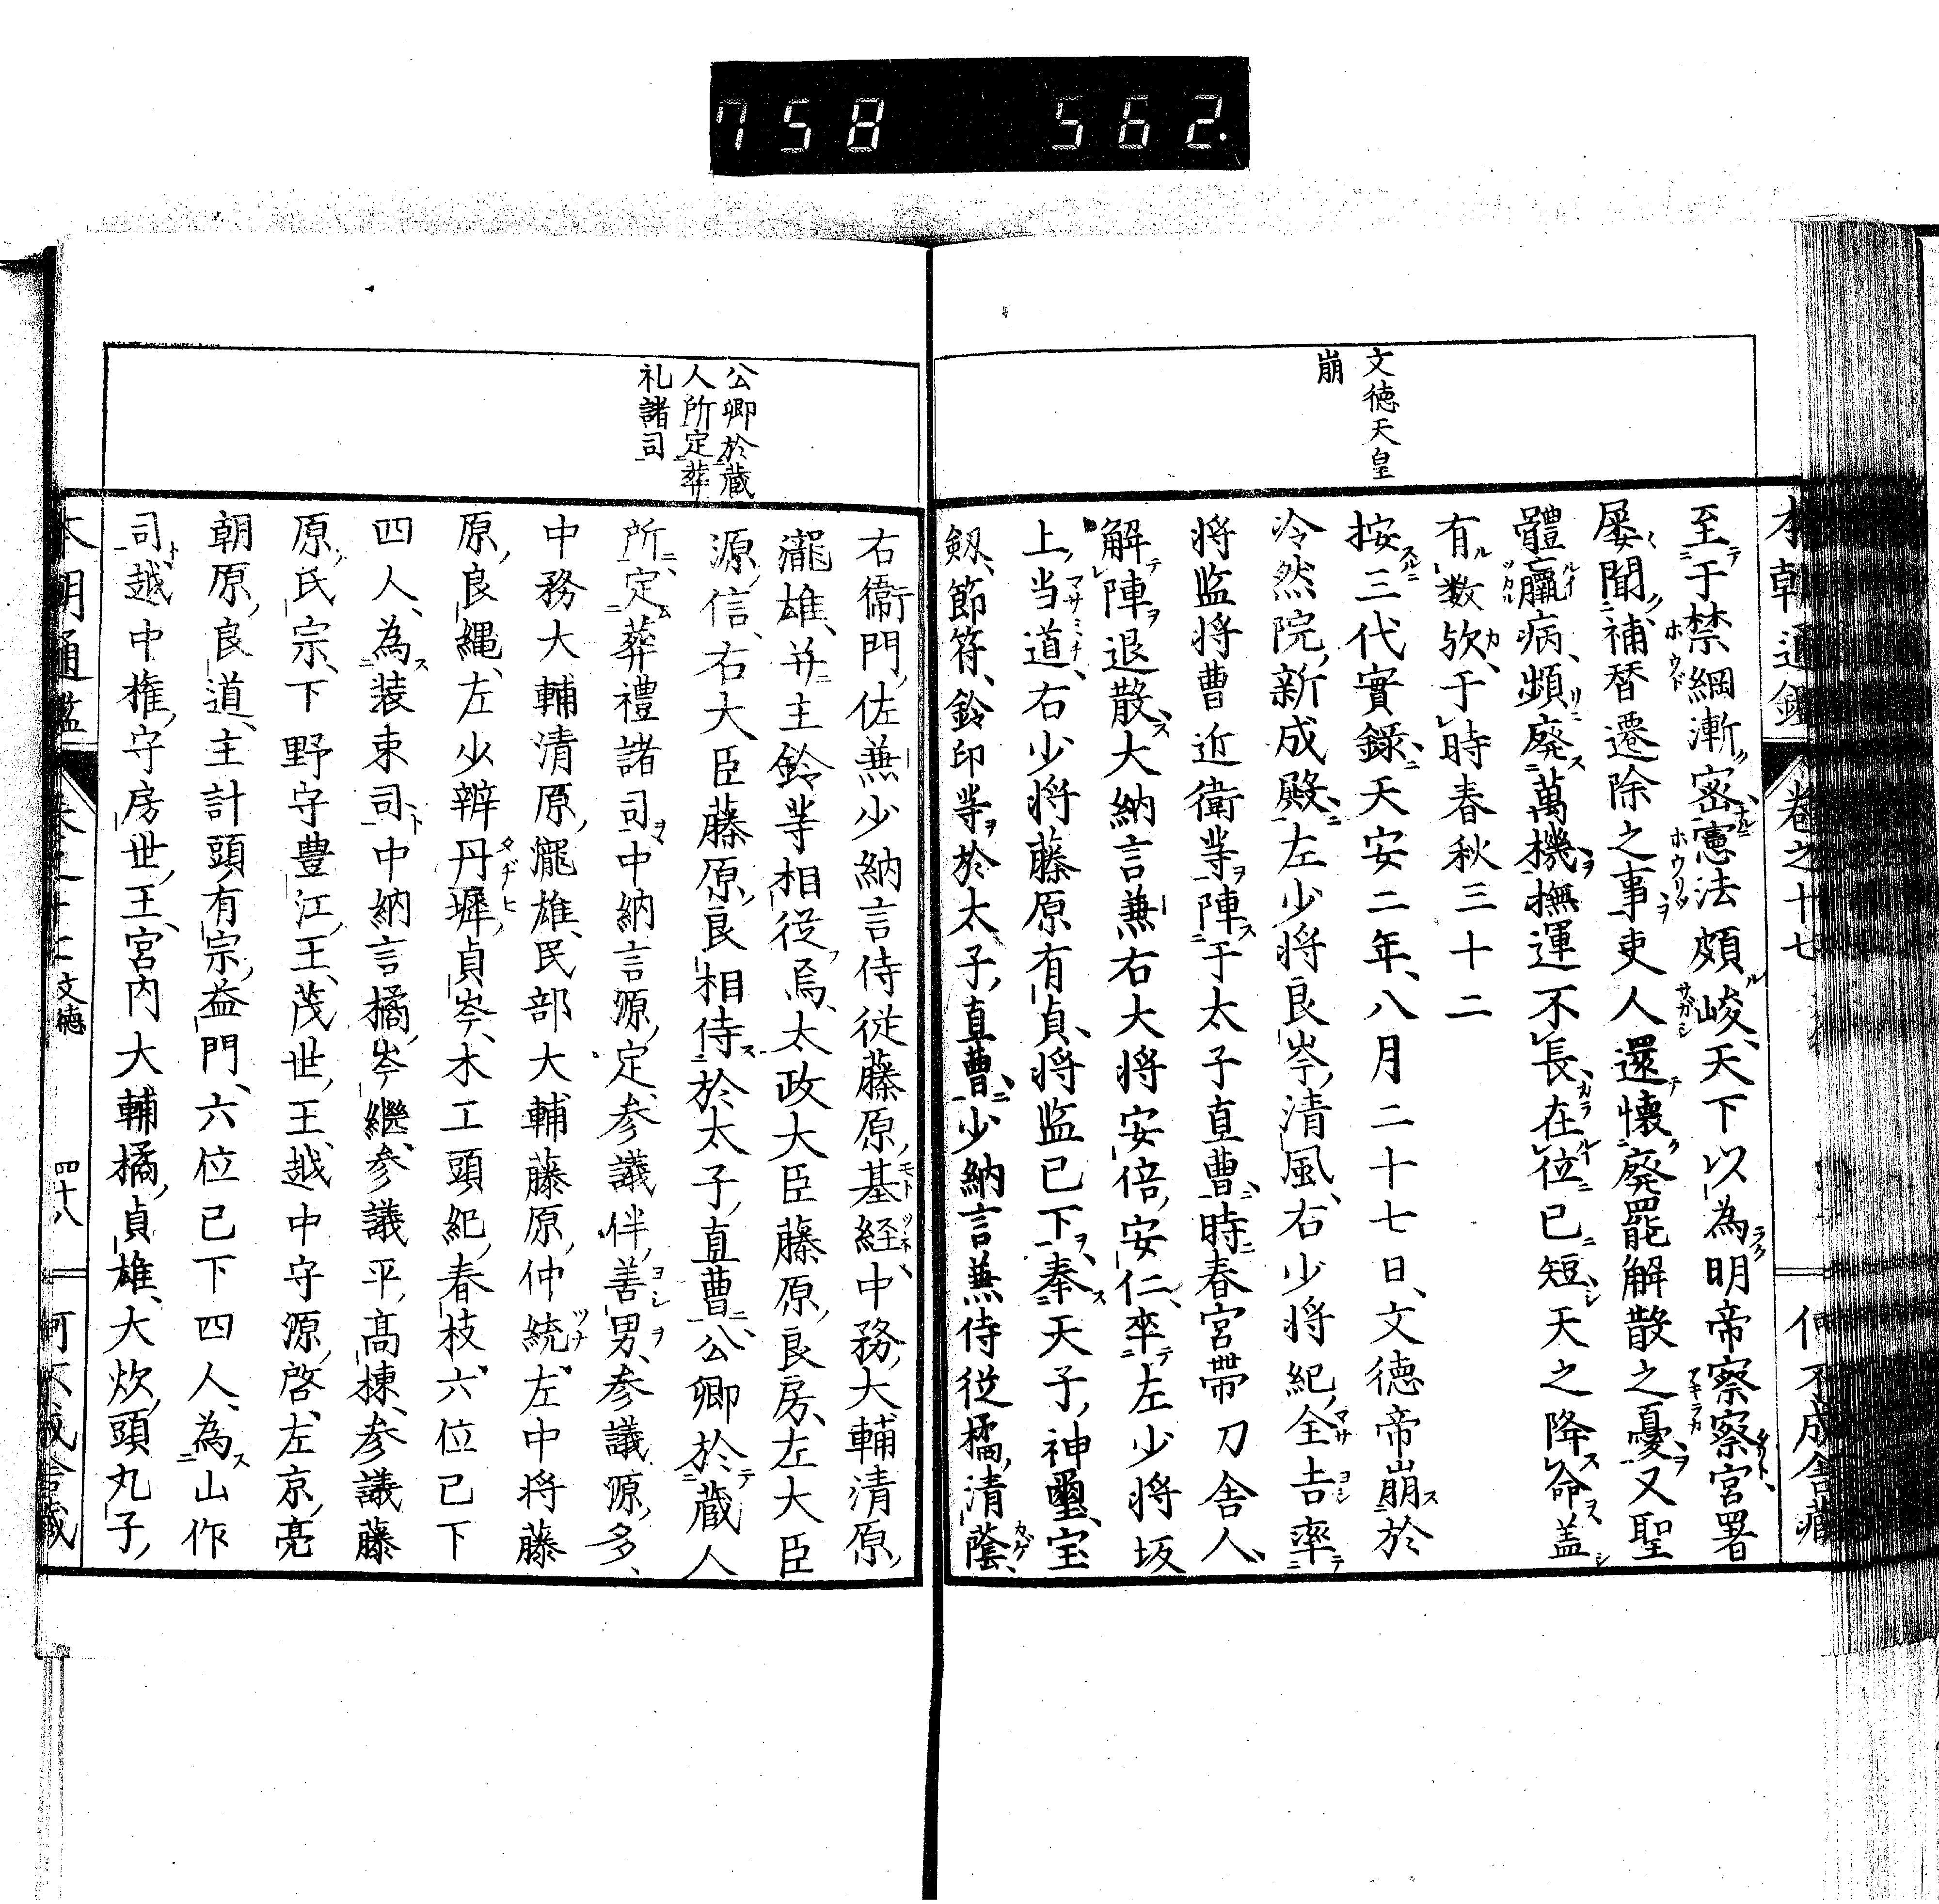 758 562.
文徳天皇
崩
本朝通鑑 卷之十七
至于禁綱漸密憲法頗峻、天下以為明帝察察宮署
屡聞、補替遷除之事吏人還懐廢罷解散之憂又聖
體羸病、頻廢萬機撫運不長、在位已短天之降命盖
有数欤、于時春秋三十二
按三代實録、天安二年、八月二十七日、文徳帝崩於
冷然院、新成殿、左少将良岑、清風、右少将紀、全吉率
将監将曹近衛等陣于太子直曹、時春宮帶刀舎人、
解陣退散、大納言兼右大将安倍、安仁率左少将坂
上、当道、右少将藤原有貞、将監已下、奉天子、神璽、宝
剱、節符、鈴印等於太子、直曹、少納言兼侍従橘、清蔭、
公卿於蔵
人所定葬
礼諸司
右衞門、佐兼少納言侍従藤原、基経、中務、大輔清原、
瀧雄、并主鈴等相従、焉、太政大臣藤原、良房、左大臣
源、信、右大臣藤原、良相侍於太子、直曹、公卿於蔵人
所、定葬禮諸司中納言源、定、参議伴、善男、参議源、多、
中務大輔清原、瀧雄、民部大輔藤原、仲統、左中将藤
原、良縄、左少辨丹墀、貞岑、木工頭紀、春枝、六位已下
四人、為装束司、中納言橘、岑継、参議平、高棟、参議藤
原、氏宗、下野守豊江、王、茂世、王、越中守源、啓、左京、亮
朝原、良道、主計頭有宗、益門、六位已下四人、為山作
司、越中権、守房世、王、宮内大輔橘、貞雄、大炊、頭丸子、
文徳
四十八